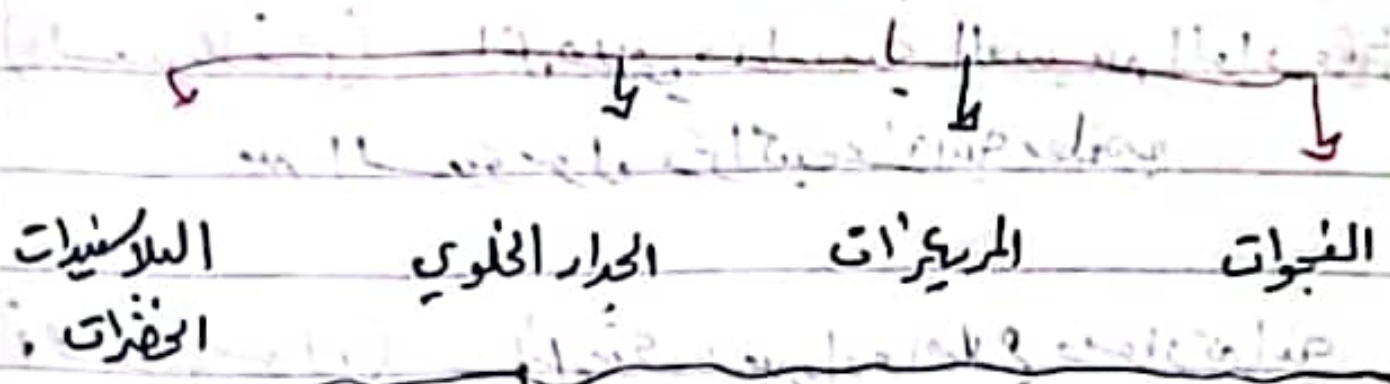 الفجوات المريكزات الجدار الخلوي البلاستيدات
الخضرات .